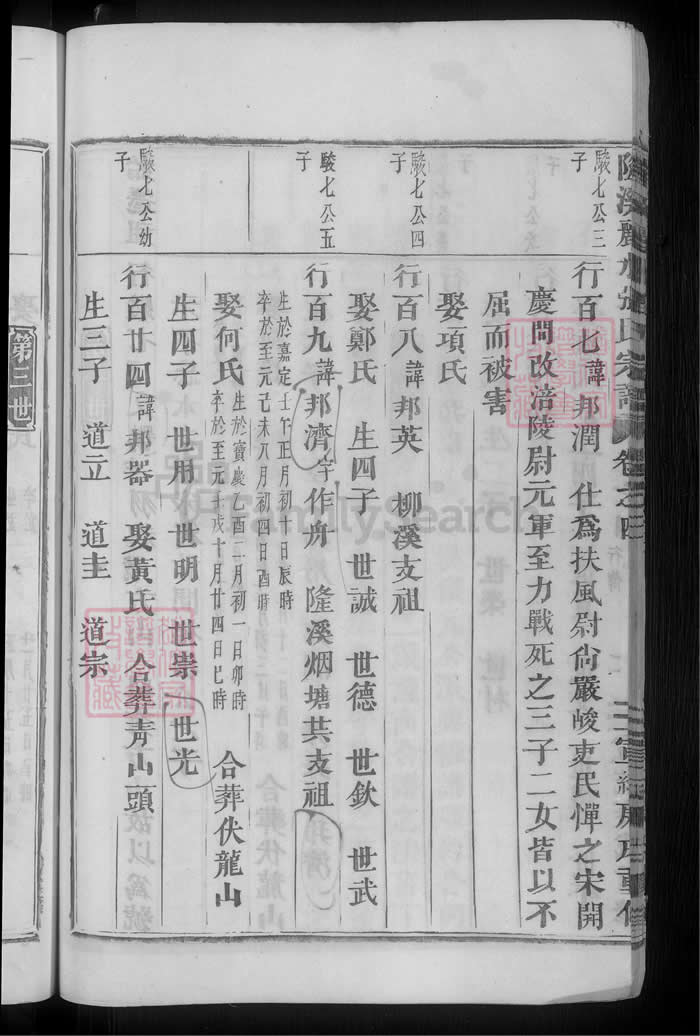 隆溪麗水張氏宗譜 卷之四
駿七公三子
行百七諱邦潤 仕為扶風尉尙嚴峻吏民憚之宋開
慶間改涪陵尉元軍至力戰死之三子二女皆以不
屈而被害
娶項氏
駿七公四子
行百八諱邦英 柳溪支祖
娶鄭氏 生四子 世誠 世德 世欽 世武
駿七公五子
行百九諱邦濟字作舟 隆溪烟塘其支祖
生於嘉定壬午正月初十日辰時
卒於至元己未八月初四日酉時
娶何氏
生於寶慶乙酉二月初一日卯時
卒於至元壬戌十月廿四日巳時
合葬伏龍山
生四子 世用 世明 世崇 世光
駿七公幼子
行百廿四諱邦器 娶黃氏 合葬靑山頭
生三子 道立 道圭 道宗
第三世
FamilySearch